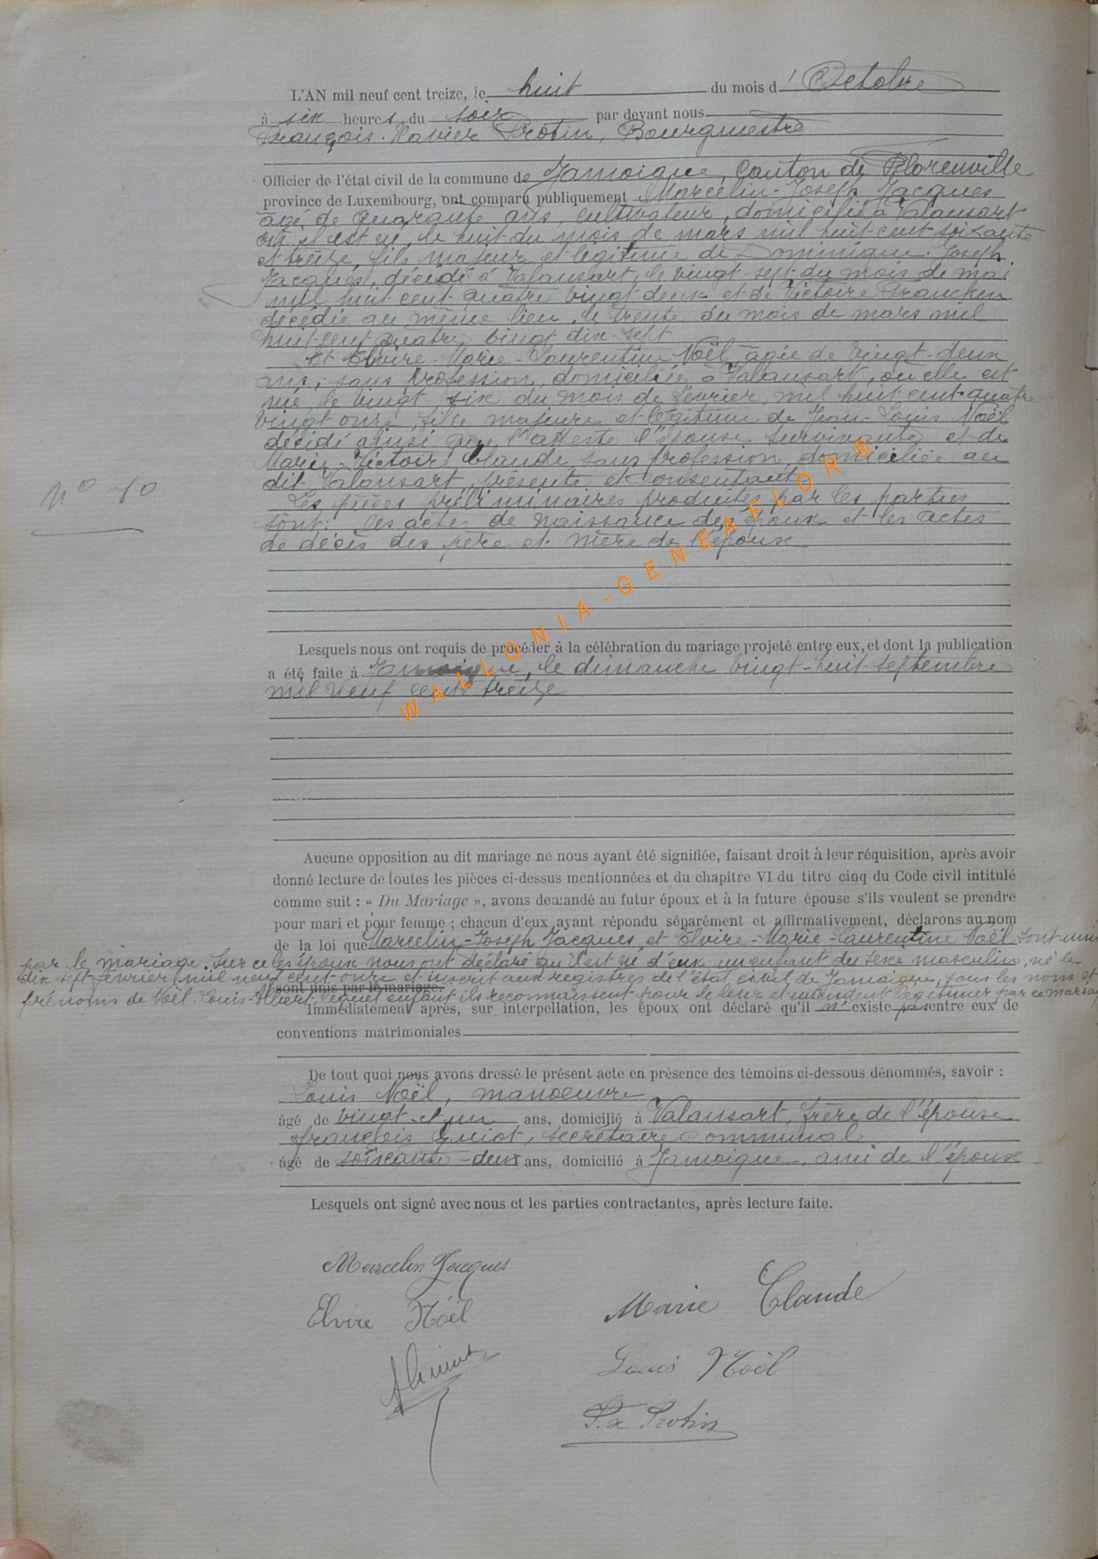 L'AN mil neuf cent treize, le huit du mois d'Octobre
à six heures du soir par devant nous
François-Xavier Protin, Bourgmestre
Officier de l'état civil de la commune de Jamoigne, Canton de Florenville
province de Luxembourg, ont comparu publiquement Marcelin-Joseph Jacques
âgé de quarante ans, cultivateur, domicilié à Valansart
où il est né, le huit du mois de mars mil huit cent soixante
et treize, fils majeur et légitime de Dominique-Joseph
Jacques, décédé à Valansart, le vingt-sept du mois de mai
mil huit cent quatre vingt deux et de Victoire
décédée au même lieu, le trente du mois de mars mil
huit cent quatre vingt dix-sept
Et Elvire-Marie-Laurentine Noël, âgée de vingt-deux
ans, sans profession, domiciliée à Valansart, où elle est
née, le vingt six du mois de février mil huit cent quatre
vingt onze, fille majeure et légitime de Jean-Louis Noël
décédé ainsi que l'atteste l'épouse survivante et de
Marie-Victoire Claude, sans profession, domiciliée au
dit Valansart, présente et consentant
Les pièces préliminaires produites par les parties
sont: les actes de naissance des époux et les actes
de décès des père et mère de l'épouse
N° 10
Lesquels nous ont requis de procéder à la célébration du mariage projeté entre eux, et dont la publication
a été faite à Jamoigne, le dimanche vingt-huit septembre
mil neuf cent treize
WALLONIA-GENEAFLOR®
Aucune opposition au dit mariage ne nous ayant été signifiée, faisant droit à leur réquisition, après avoir
donné lecture de toutes les pièces ci-dessus mentionnées et du chapitre VI du titre cinq du Code civil intitulé
comme suit : « Du Mariage », avons demandé au futur époux et à la future épouse s'ils veulent se prendre
pour mari et pour femme ; chacun d'eux ayant répondu séparément et affirmativement, déclarons au nom
de la loi que Marcelin-Joseph Jacques, et Elvire-Marie-Laurentine Noël sont unis
par le mariage. Sur ce les époux nous ont déclaré qu'il est né d'eux un enfant du sexe masculin, né le
dix sept février mil neuf cent onze et inscrit aux registres de l'état civil de Jamoigne, sous les noms et
sont unis par le mariage.
prénoms de Noël Louis-Albert, lequel enfant ils reconnaissent pour le leur et entendent légitimer par ce mariage
Immédiatement après, sur interpellation, les époux ont déclaré qu'il n'existe pas entre eux de
conventions matrimoniales
De tout quoi nous avons dressé le présent acte en présence des témoins ci-dessous dénommés, savoir :
Louis Noël, manoeuvre
âgé de vingt et un ans, domicilié à Valansart, frère de l'épouse
François Guiot, secrétaire communal
âgé de soixante-deux ans, domicilié à Jamoigne, ami de l'époux
Lesquels ont signé avec nous et les parties contractantes, après lecture faite.
Marcelin Jacques
Marie Claude
Elvire Noël
Louis Noël
Protin